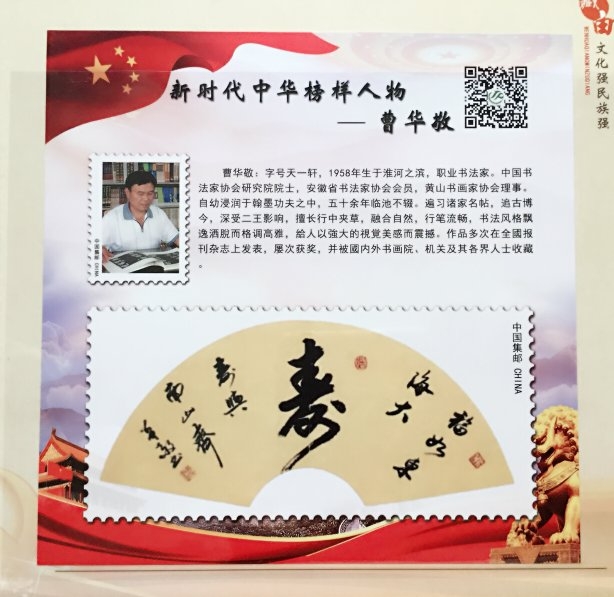 文化强民族强
新时代中华榜样人物
— 曹华敬
曹华敬：字号天一轩，1958年生于淮河之滨，职业书法家。中国书
法家协会研究院院士，安徽省书法家协会会员，黄山书画家协会理事。
自幼浸润于翰墨功夫之中，五十余年临池不辍。遍习诸家名帖，追古博
今，深受二王影响，擅长行中夹草，融合自然，行笔流畅，书法风格飘
逸洒脱而格调高雅，給人以強大的視覚美感而震撼。作品多次在全國报
刊杂志上发表，屡次获奖，并被國内外书画院、机关及其各界人士收藏
。
中国集邮 CHINA
中国集邮 CHINA
福如东
海大
寿
寿与
南山齐